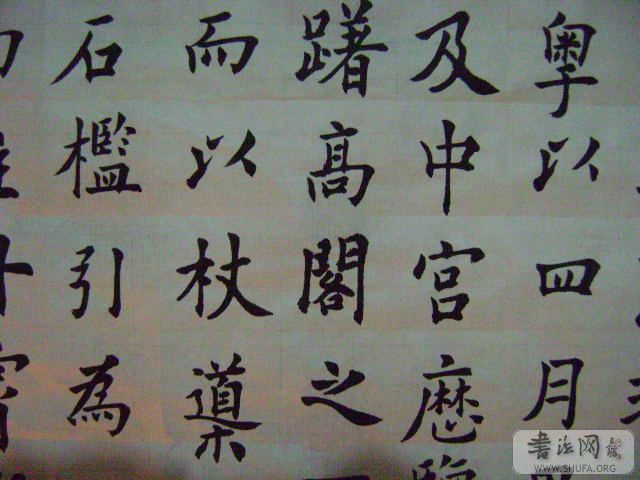 粵以四月
及中宮歷
躇高閣之
而以杖導
石檻引為
書法网
WWW.SHUFA.ORG